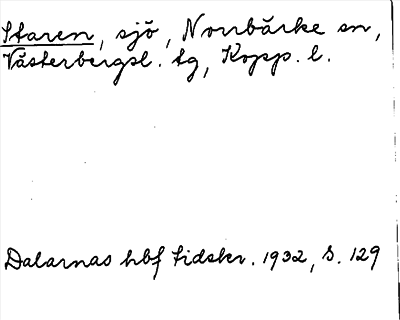 Staren, sjö, Norrbärke sn,
Västerbergsl. tg, Kopp. l.
Dalarnas hbf tidskr. 1932, s. 129